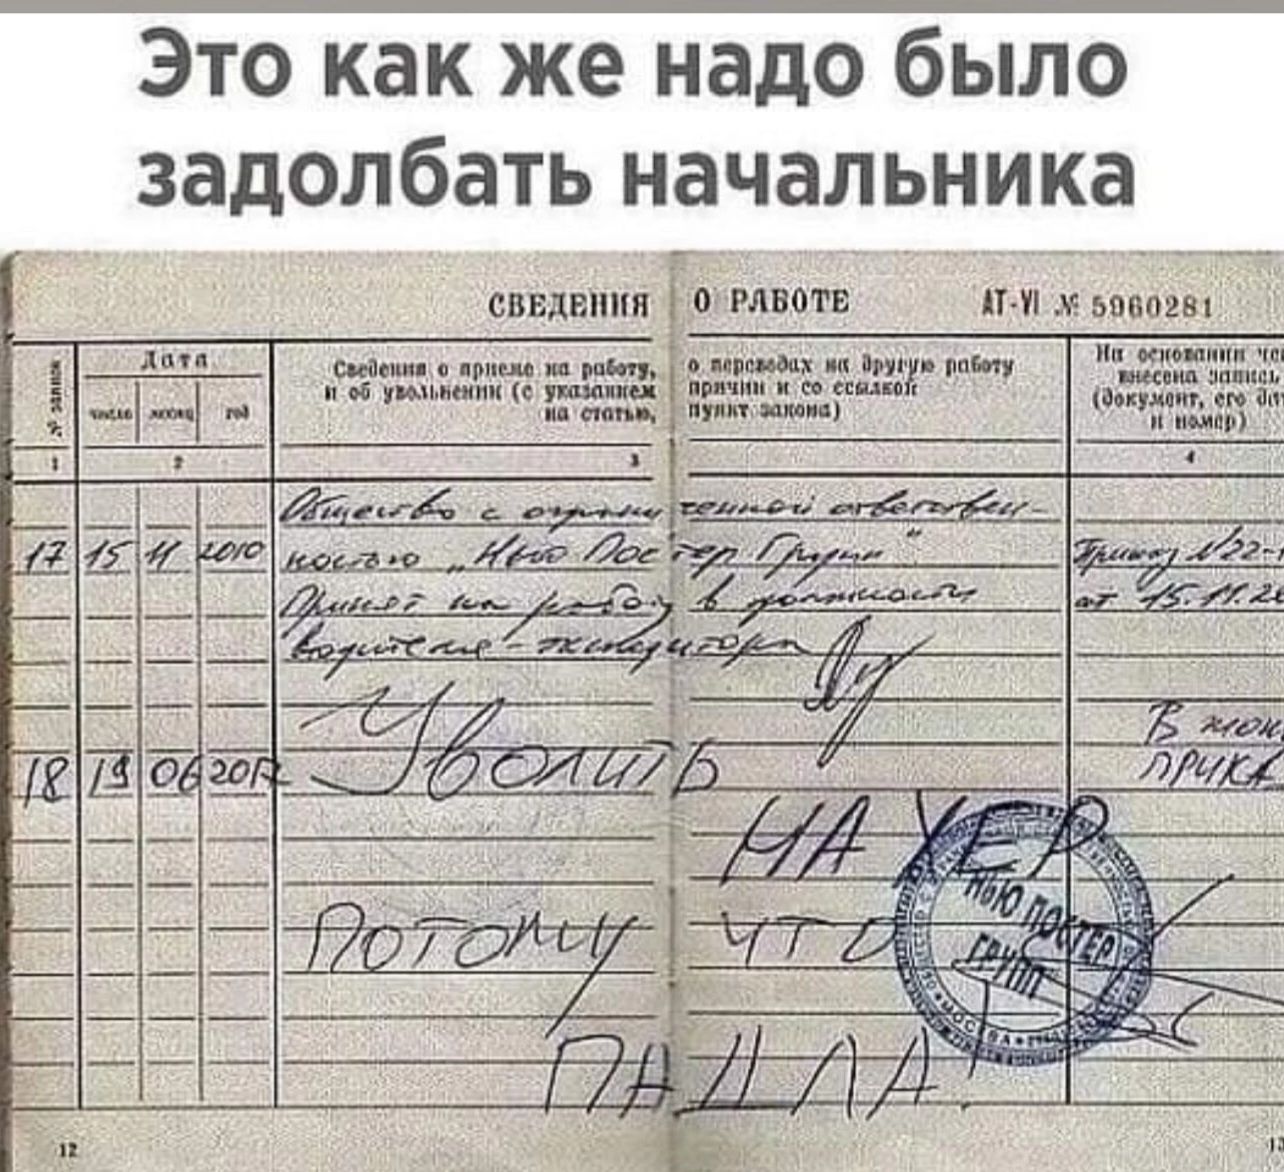 Это как же надо было
задолбать начальника
СВЕДЕНИЯ О РАБОТЕ АТ-VI № 5960281
№ записи
Дата
число месяц год
Сведения о приеме на работу, о переводах на другую работу
и об увольнении (с указанием причин и со ссылкой
на статью, пункт закона)
На основании чег
внесена запись
(документ, его дат
и номер)
1 2 3 4
Общество с ограниченной ответствен-
17 15 11 2010 ностью "Нью Постер Групп" Приказ №22-
Принят на работу в должности от 15.11.20
водителя-экспедитора
В мою
18 19 06 2012 Уволить ПРИКА
НА ХЕР
ПОТОМУ ЧТО
ПАДЛА!
НЬЮ ПОСТЕР
ГРУПП
МОСКВА
12 13